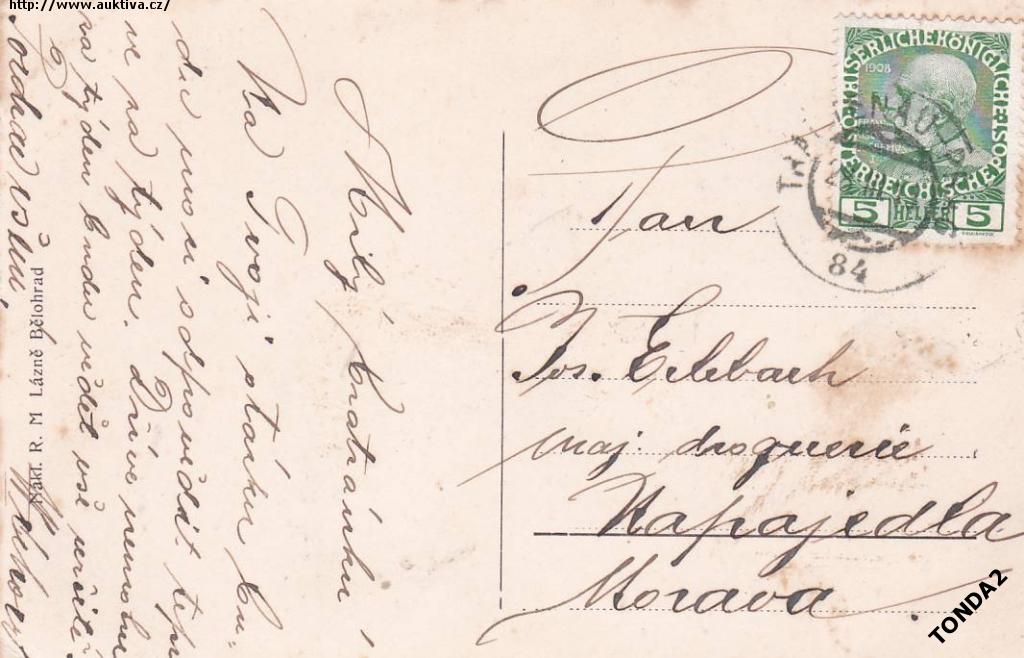 http://www.auktiva.cz/
Milý bratránku!
Na Tvoji otázku bu-
du moci odpovědět tepr
ve za týden. Dříve nemohu
za týden budu vědět vše určitě.
Pozdrav
Nákl. R. M Lázně Bělohrad
KAISERLICHE KÖNIGLICHE ÖSTERREICHISCHE POST
1908
5 HELLER 5
84
Pan
Jos. Erlebach
maj. droguerie
Napajedla
Morava
TONDA2